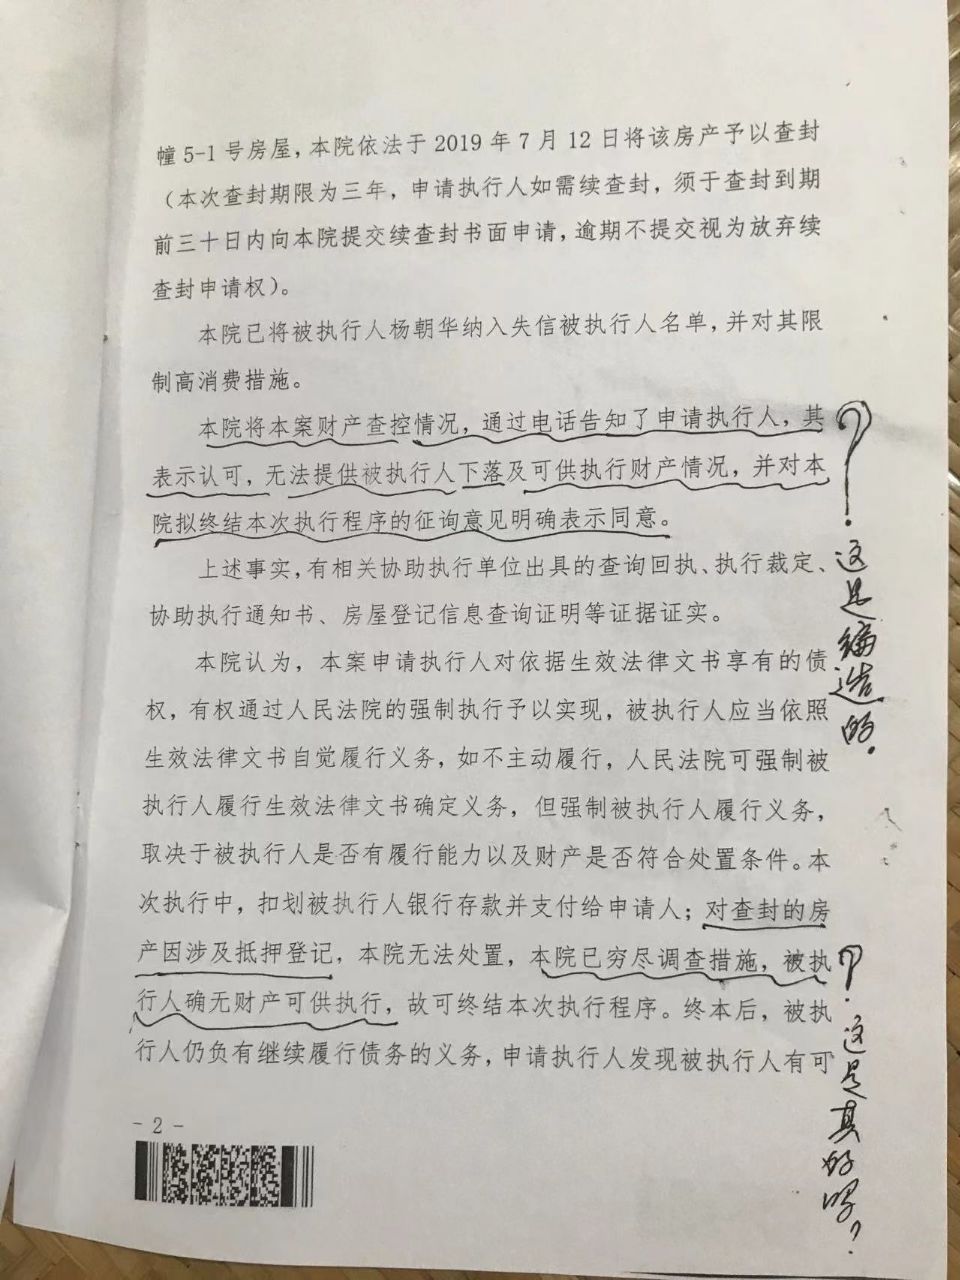 幢5-1号房屋，本院依法于2019年7月12日将该房产予以查封
（本次查封期限为三年，申请执行人如需续查封，须于查封到期
前三十日内向本院提交续查封书面申请，逾期不提交视为放弃续
查封申请权）。
本院已将被执行人杨朝华纳入失信被执行人名单，并对其限
制高消费措施。
本院将本案财产查控情况，通过电话告知了申请执行人，其
表示认可，无法提供被执行人下落及可供执行财产情况，并对本
院拟终结本次执行程序的征询意见明确表示同意。
上述事实，有相关协助执行单位出具的查询回执、执行裁定、
协助执行通知书、房屋登记信息查询证明等证据证实。
本院认为，本案申请执行人对依据生效法律文书享有的债
权，有权通过人民法院的强制执行予以实现，被执行人应当依照
生效法律文书自觉履行义务，如不主动履行，人民法院可强制被
执行人履行生效法律文书确定义务，但强制被执行人履行义务，
取决于被执行人是否有履行能力以及财产是否符合处置条件。本
次执行中，扣划被执行人银行存款并支付给申请人；对查封的房
产因涉及抵押登记，本院无法处置，本院已穷尽调查措施，被执
行人确无财产可供执行，故可终结本次执行程序。终本后，被执
行人仍负有继续履行债务的义务，申请执行人发现被执行人有可
- 2 -
？这是编造的.
？这是真的吗？